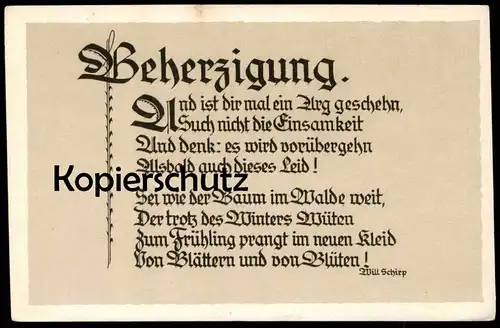 Beherzigung.
Und ist dir mal ein Arg geschehn,
Such nicht die Einsamkeit
Und denk: es wird vorübergehn
Alsbald auch dieses Leid!
Kopierschutz
Sei wie der Baum im Walde weit,
Der trotz des Winters Wüten
Zum Frühling prangt im neuen Kleid
Von Blättern und von Blüten!
Will Schirp